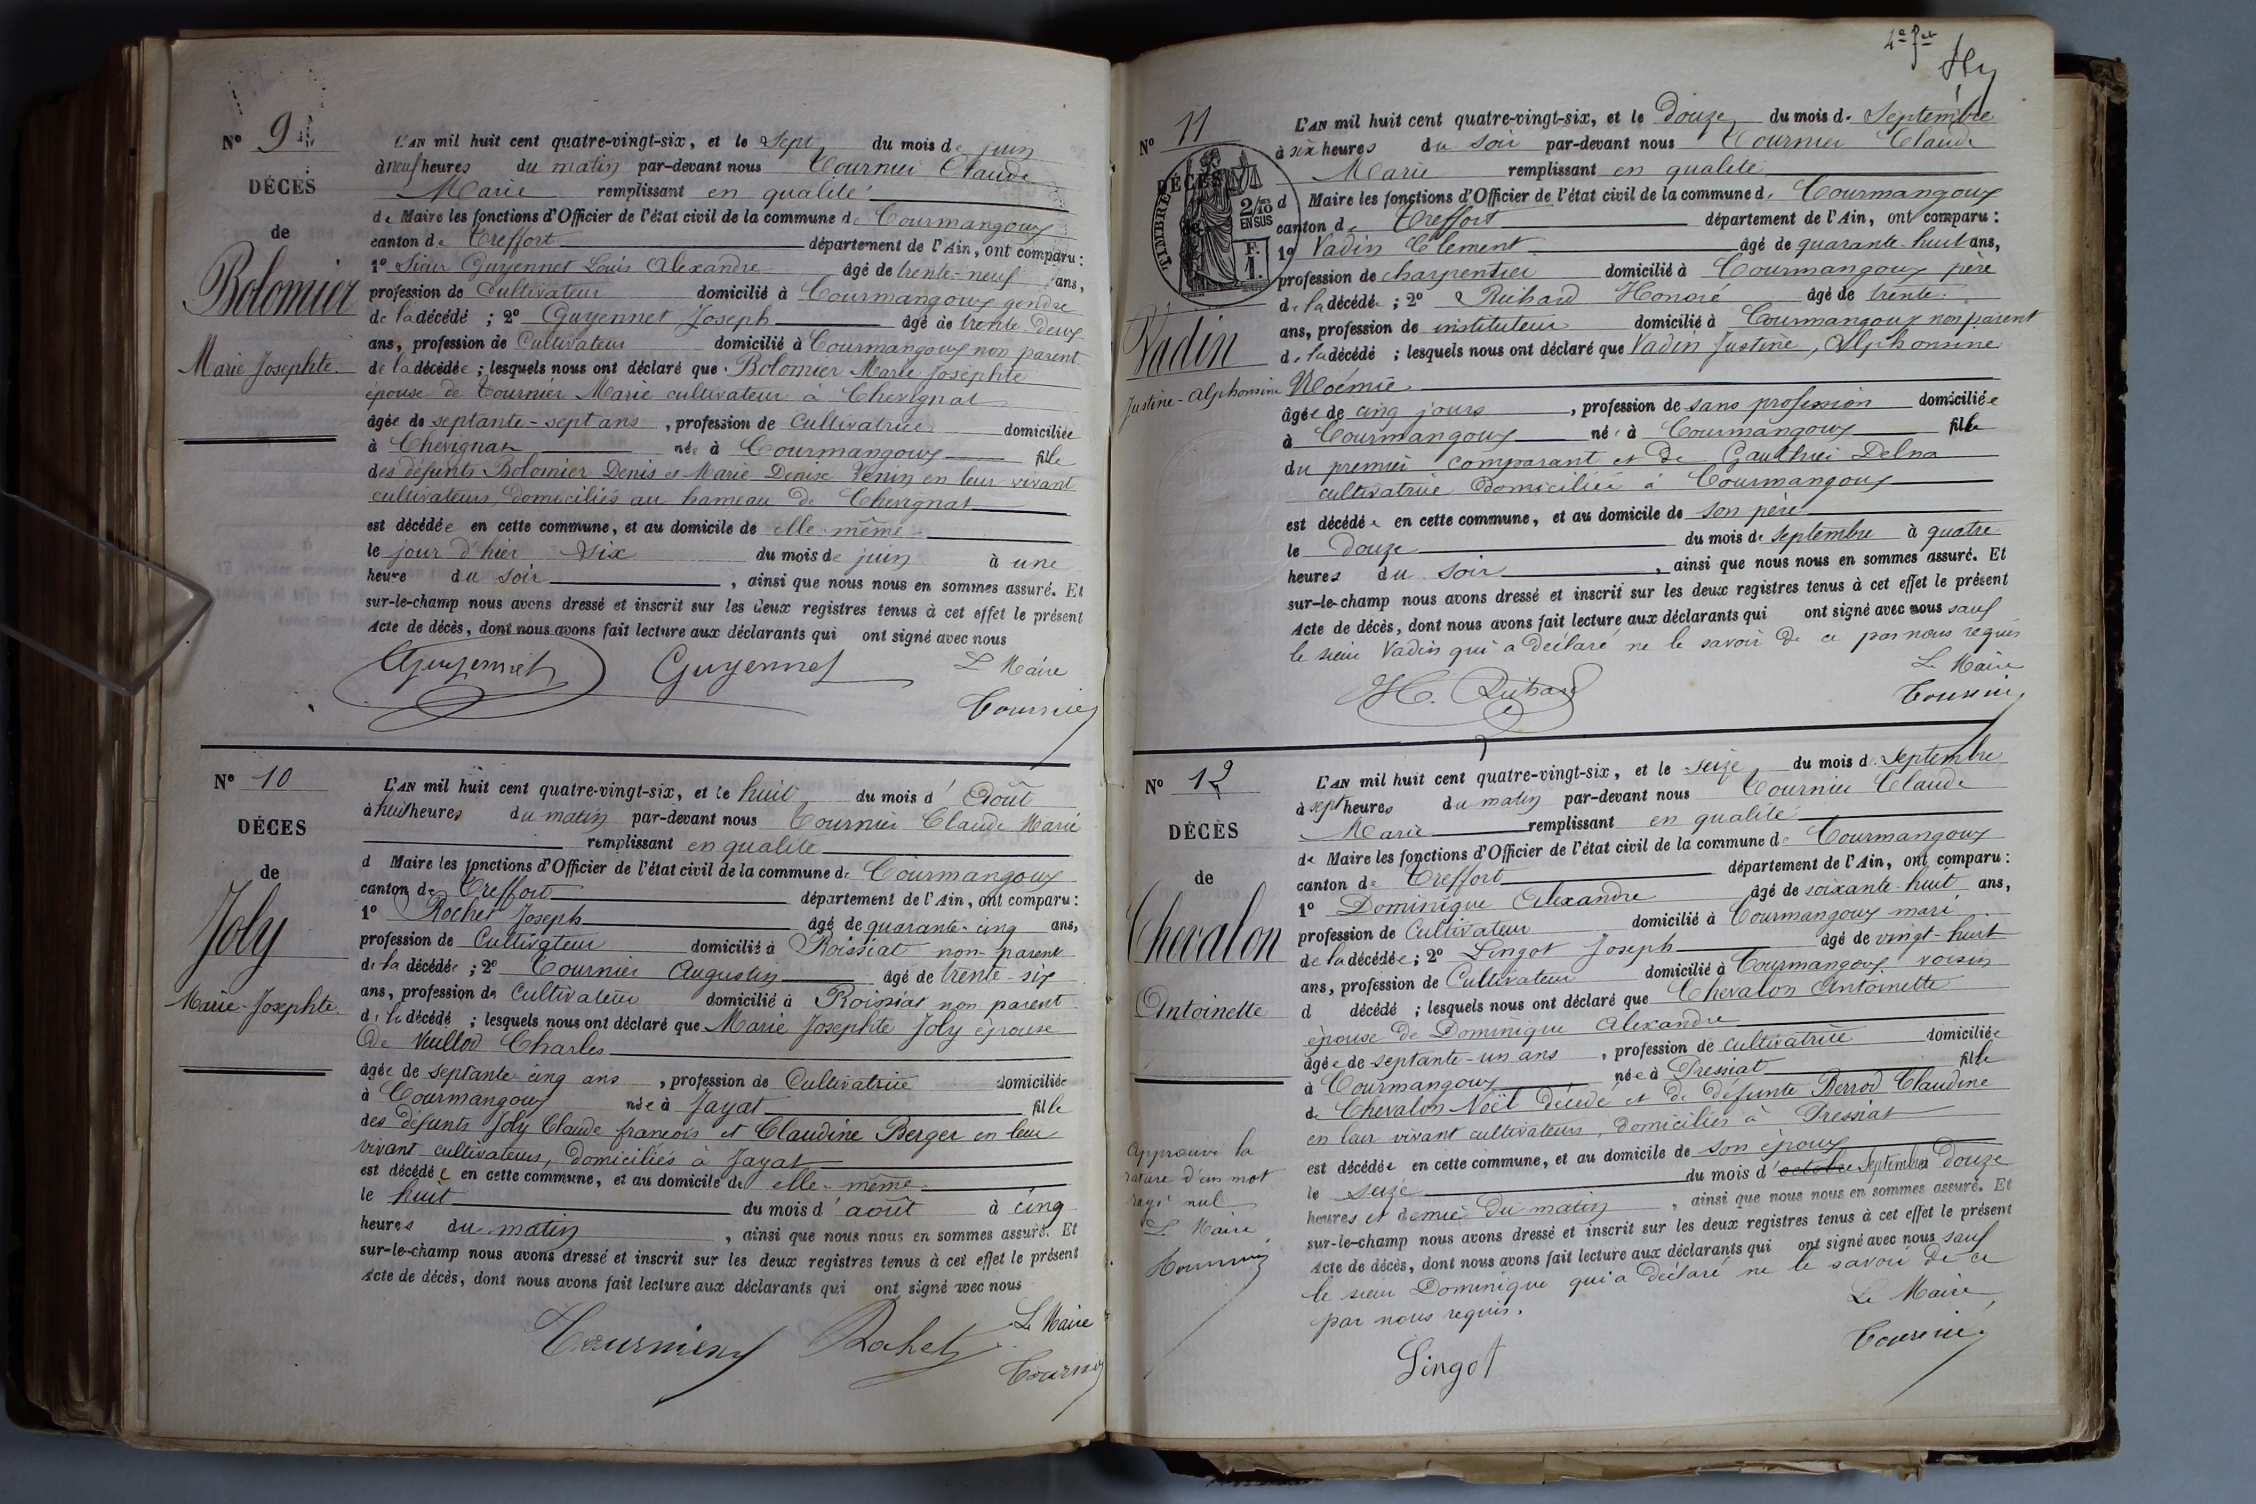 Nº 9
DÉCÈS
de
Bolomier
Marie Josephte
L'AN mil huit cent quatre-vingt-six, et le Sept du mois de juin
à neuf heures du matin par-devant nous Tournier Claude
Marie remplissant en qualité
de Maire les fonctions d'Officier de l'état civil de la commune de Courmangoux
canton de Treffort département de l'Ain, ont comparu :
1º Sieur Guyennet Louis Alexandre âgé de trente-neuf ans,
profession de Cultivateur domicilié à Courmangoux gendre
de la décédé ; 2º Guyennet Joseph âgé de trente deux
ans, profession de Cultivateur domicilié à Courmangoux non parent
de la décédée ; lesquels nous ont déclaré que Bolomier Marie Josephte
épouse de Tournier Marie cultivateur à Chevignat
âgée de septante-sept ans , profession de Cultivatrice domiciliée
à Chevignat née à Courmangoux fille
des défunts Bolomier Denis et Marie Denise Venin en leur vivant
cultivateurs, domiciliés au hameau de Chevignat
est décédée en cette commune, et au domicile de elle-même
le jour d'hier six du mois de juin à une
heure du soir , ainsi que nous nous en sommes assuré. Et
sur-le-champ nous avons dressé et inscrit sur les deux registres tenus à cet effet le présent
Acte de décès, dont nous avons fait lecture aux déclarants qui ont signé avec nous
Guyennet Guyennet Le Maire
Tournier
Nº 10
DÉCÈS
de
Joly
Marie-Josephte
L'AN mil huit cent quatre-vingt-six, et le huit du mois d' Août
à huit heures du matin par-devant nous Tournier Claude Marie
remplissant en qualité
d Maire les fonctions d'Officier de l'état civil de la commune de Courmangoux
canton de Treffort département de l'Ain, ont comparu :
1º Rochet Joseph âgé de quarante-cinq ans,
profession de Cultivateur domicilié à Roissiat non-parent
de la décédée ; 2º Tournier Augustin âgé de trente-six
ans, profession de Cultivateur domicilié à Roissiat non parent
de la décédé ; lesquels nous ont déclaré que Marie Josephte Joly épouse
de Vuillod Charles
âgée de septante cinq ans , profession de Cultivatrice domiciliée
à Courmangoux née à Jayat fille
des défunts Joly Claude françois et Claudine Berger en leur
vivant cultivateurs, domiciliés à Jayat
est décédée en cette commune, et au domicile de elle-même
le huit du mois d' août à cinq
heures du matin , ainsi que nous nous en sommes assuré. Et
sur-le-champ nous avons dressé et inscrit sur les deux registres tenus à cet effet le présent
Acte de décès, dont nous avons fait lecture aux déclarants qui ont signé avec nous
Tournier Rochet Le Maire
Tournier
Nº 11
DÉCÈS
TIMBRE
2/10 EN SUS
F. 1.
Vadin
Justine-Alphonsine
L'AN mil huit cent quatre-vingt-six, et le Douze du mois de Septembre
à six heures du soir par-devant nous Tournier Claude
Marie remplissant en qualité
d Maire les fonctions d'Officier de l'état civil de la commune de Courmangoux
canton de Treffort département de l'Ain, ont comparu :
1º Vadin Clement âgé de quarante-huit ans,
profession de charpentier domicilié à Courmangoux père
de la décédée ; 2º Richard Honoré âgé de trente
ans, profession de instituteur domicilié à Courmangoux non parent
de la décédé ; lesquels nous ont déclaré que Vadin Justine, Alphonsine
Noémie
âgée de cinq jours , profession de sans profession domiciliée
à Courmangoux née à Courmangoux fille
du premier comparant et de Gauthier Delna
cultivatrice domiciliée à Courmangoux
est décédée en cette commune, et au domicile de son père
le douze du mois de septembre à quatre
heures du soir , ainsi que nous nous en sommes assuré. Et
sur-le-champ nous avons dressé et inscrit sur les deux registres tenus à cet effet le présent
Acte de décès, dont nous avons fait lecture aux déclarants qui ont signé avec nous sauf
le sieur Vadin qui a déclaré ne le savoir de ce par nous requis
Le Maire
H. Richard Tournier
Nº 12
DÉCÈS
de
Chevalon
Antoinette
Approuvé la
rature d'un mot
rayé nul
Le Maire
Tournier
L'AN mil huit cent quatre-vingt-six, et le seize du mois de Septembre
à sept heures du matin par-devant nous Tournier Claude
Marie remplissant en qualité
de Maire les fonctions d'Officier de l'état civil de la commune de Courmangoux
canton de Treffort département de l'Ain, ont comparu :
1º Dominique Alexandre âgé de soixante-huit ans,
profession de Cultivateur domicilié à Courmangoux mari
de la décédée ; 2º Lingot Joseph âgé de vingt-huit
ans, profession de Cultivateur domicilié à Courmangoux voisin
d décédé ; lesquels nous ont déclaré que Chevalon Antoinette
épouse de Dominique Alexandre
âgée de septante-un ans , profession de cultivatrice domiciliée
à Courmangoux née à Pressiat fille
de Chevalon Noël décédé et de défunte Berrod Claudine
en leur vivant cultivateurs, domiciliés à Pressiat
est décédée en cette commune, et au domicile de son époux
le seize du mois d' octobre septembre à Douze
heures et demie du matin , ainsi que nous nous en sommes assuré. Et
sur-le-champ nous avons dressé et inscrit sur les deux registres tenus à cet effet le présent
Acte de décès, dont nous avons fait lecture aux déclarants qui ont signé avec nous sauf
le sieur Dominique qui a déclaré ne le savoir de ce
par nous requis.
Le Maire
Lingot Tournier